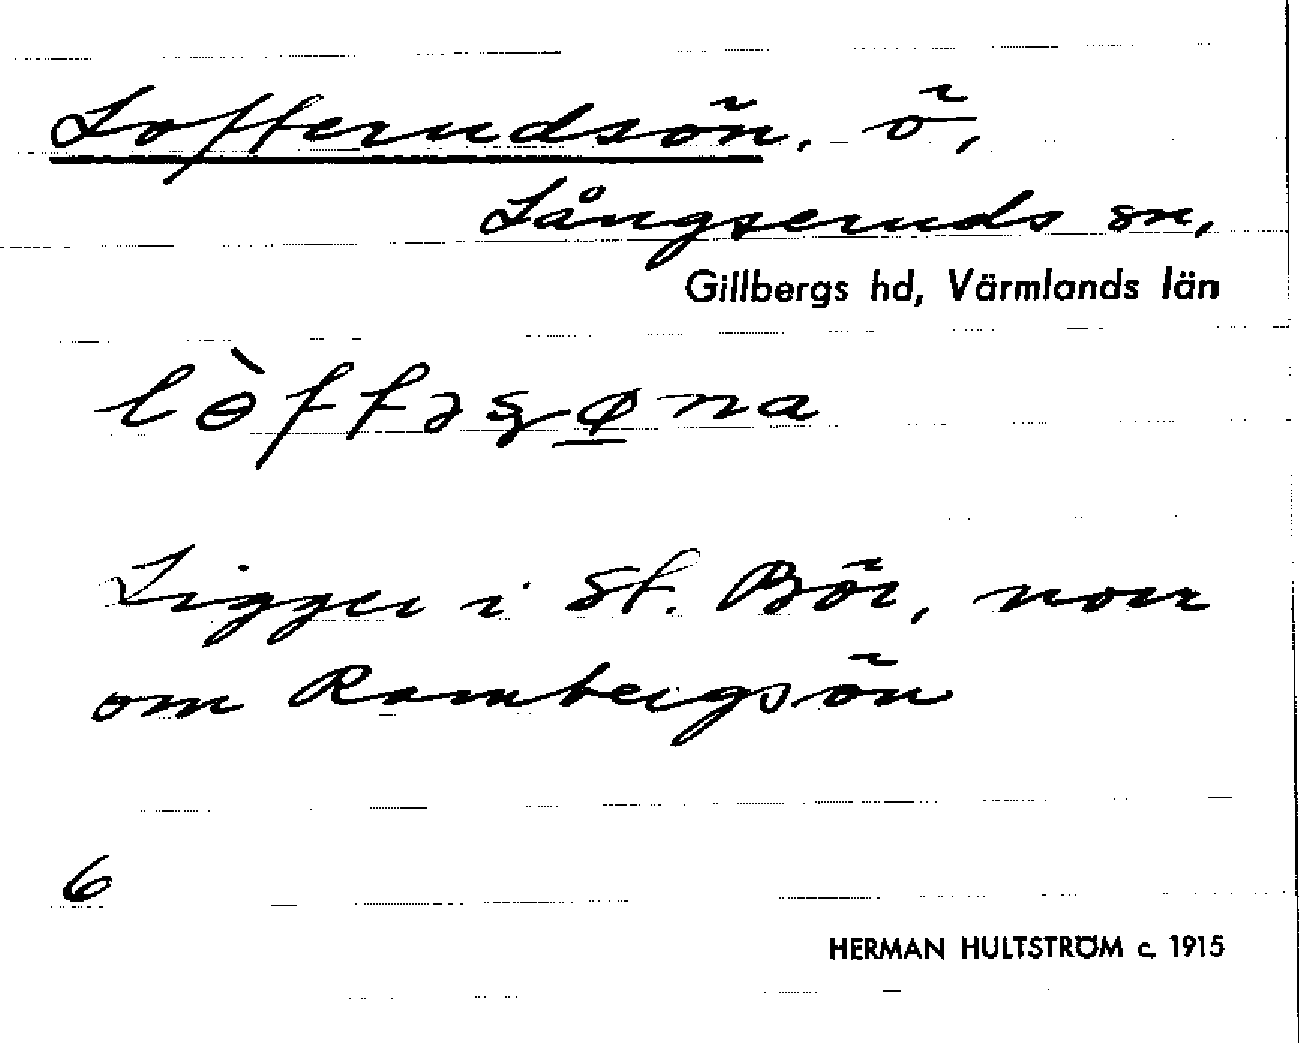 Lofferudsön, ö,
Långseruds sn,
Gillbergs hd, Värmlands län
Ligger i St. Bör, norr
om Rambergsön
6
HERMAN HULTSTRÖM c. 1915